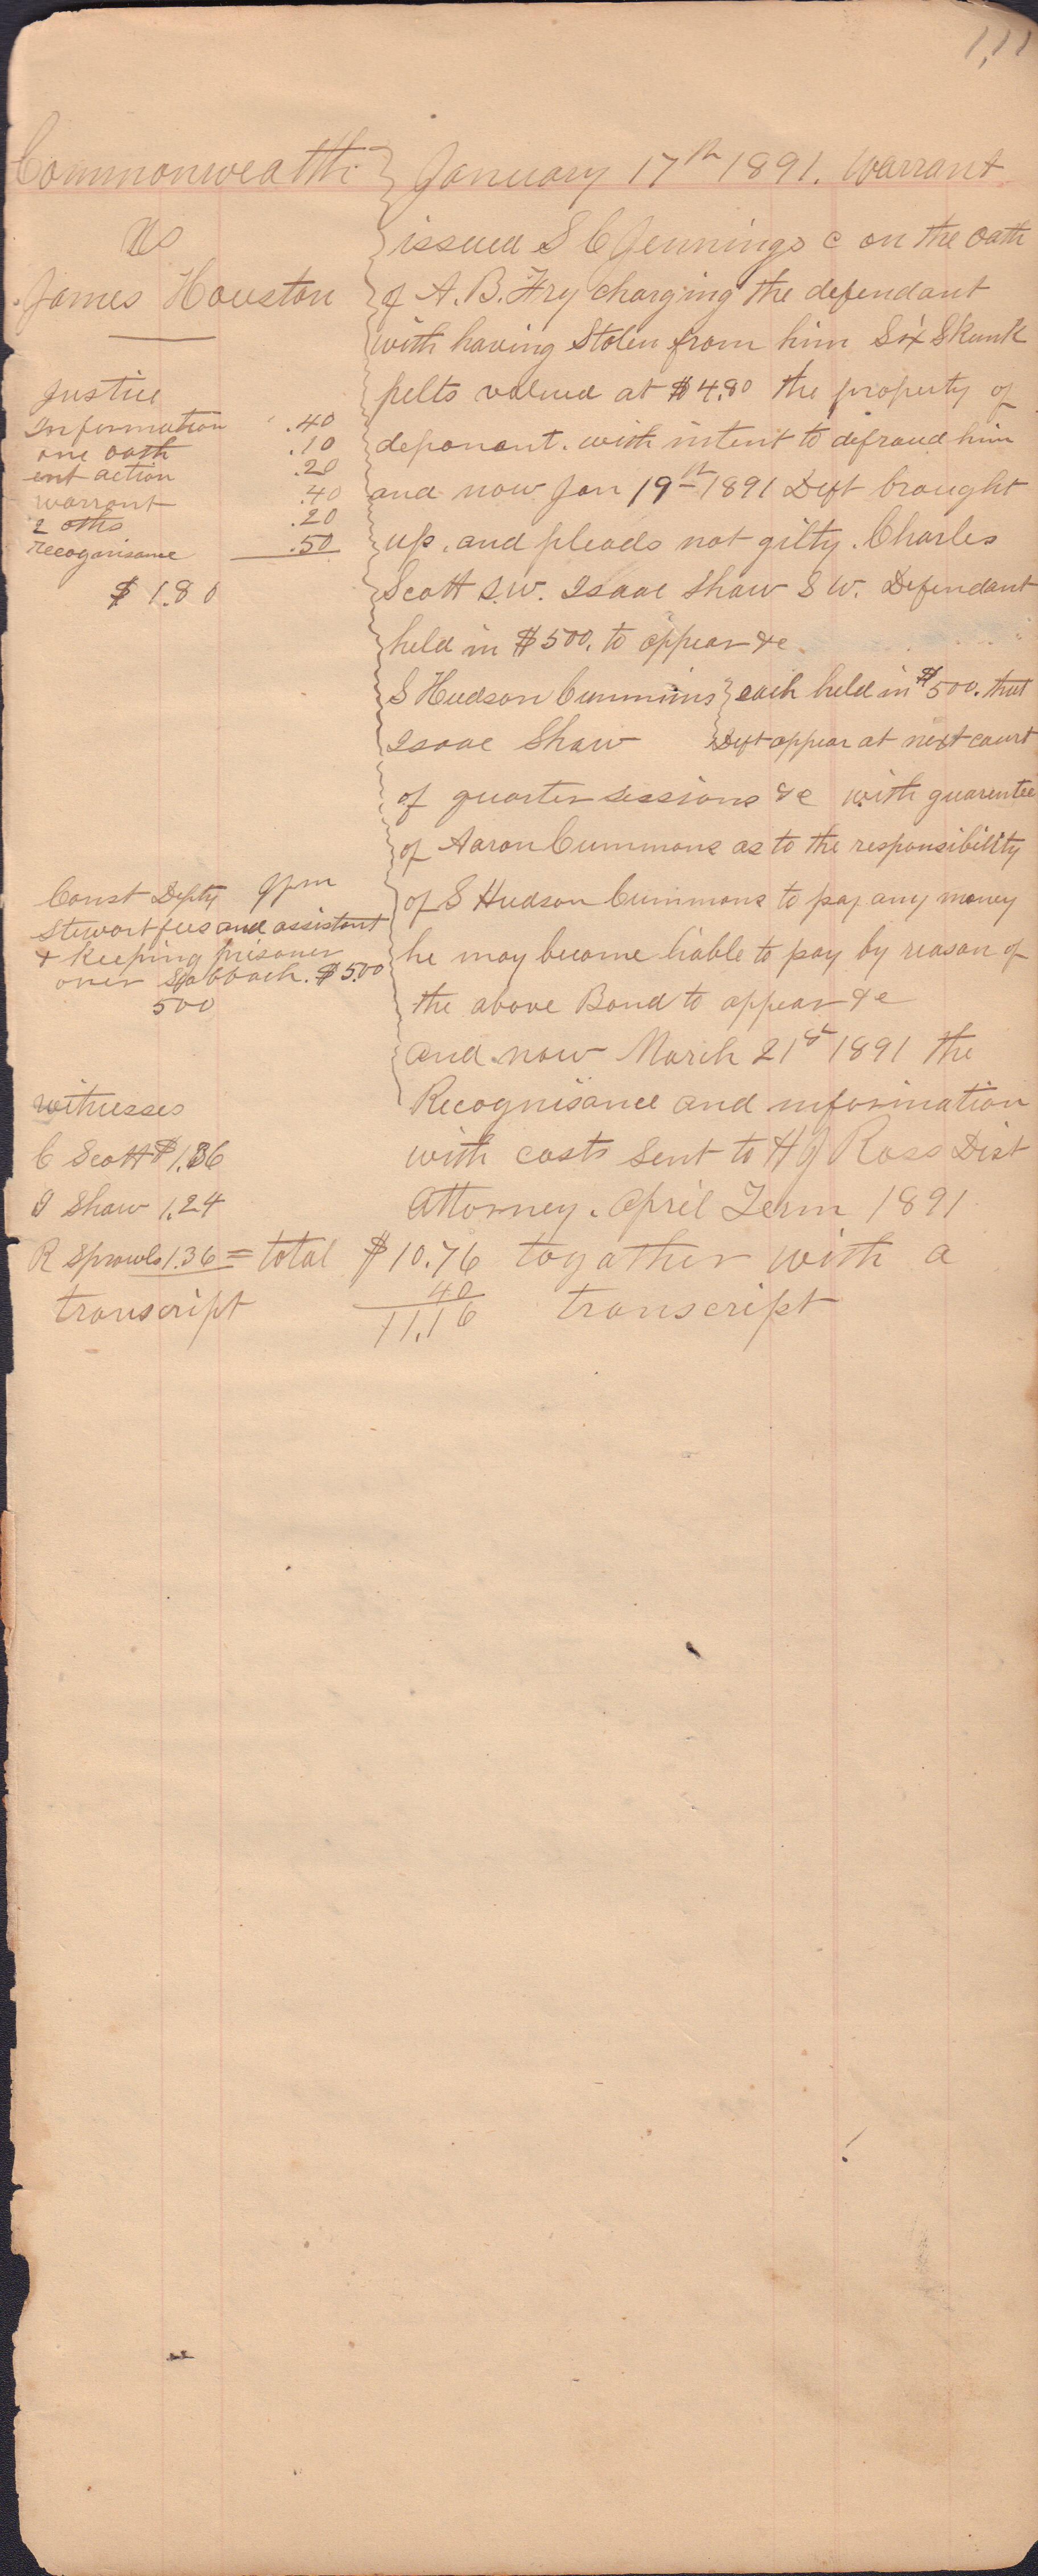 111
Commonwealth
Vs
James Houston
Justice
Information .40
one oath .10
ent action .20
warrant .40
2 oths .20
recoganisance .50
$ 1.80
Const Depty
Stewart fees and assistant
& keeping prisoner
over Sabbath. $5.00
500
witnesses
C Scott $1.36
I Shaw 1.24
R Sprowls 1.36 = total $10.76
transcript 40
11.16
January 17th 1891. Warrant
issued S C Jennings c on the oath
of A. B. Fry charging the defendant
with having Stolen from him Six Skunk
pelts valued at $4.80 the property of
deponant. with intent to defraud him
and now Jan 19th 1891 Deft brought
up, and pleads not gilty. Charles
Scott S.W. Isaac Shaw S W. Defendant
held in $500. to appear &c
S Hudson Cummins } each held in $500. that
Isaac Shaw } Deft appear at next court
of quarter sessions &c with guarentee
of Aaron Cummons as to the responsibility
of S Hudson Cummons to pay any money
he may become liable to pay by reason of
the above Bond to appear &c
and now March 21st 1891 the
Recognisance and information
with costs sent to H J Ross Dist
Attorney. April Term 1891
togather with a
transcript